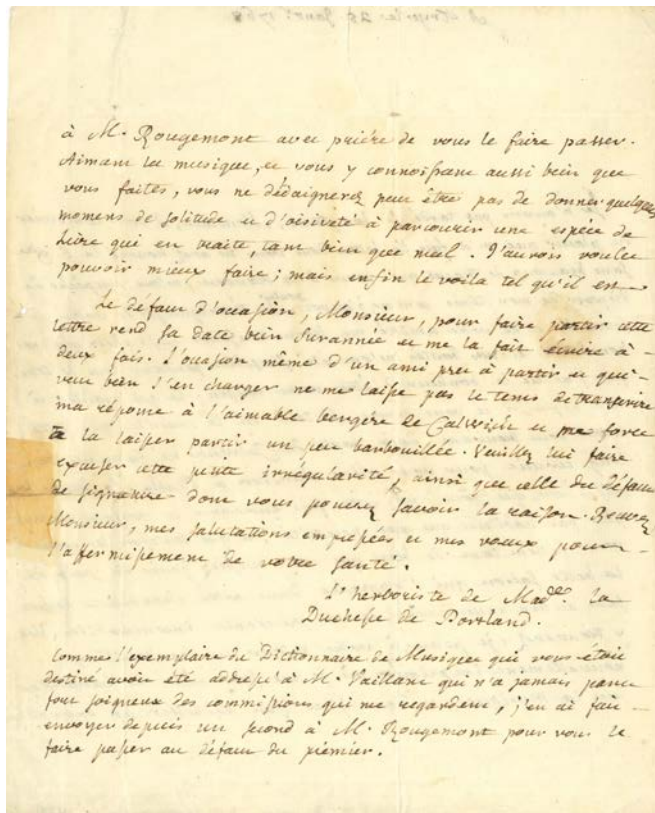 à M. Rougemont avec priére de vous le faire passer.
Aimant la musique, et vous y connoissant aussi bien que
vous faites, vous ne dédaignerez peut être pas de donner quelques
momens de solitude et d'oisiveté à parcourir une espéce de
Livre qui en traite, tant bien que mal. J'aurois voulu
pouvoir mieux faire ; mais enfin le voila tel qu'il est.
Le defaut d'occasion, Monsieur, pour faire partir cette
lettre rend sa date bien surannée et me la fait écrire à
deux fois. L'occasion même d'un ami pret à partir et qui
veut bien s'en charger ne me laisse pas le tems de transcrire
ma réponse à l'aimable bergére de Calwich et me force
à la laisser partir un peu barbouillée. Veuillez lui faire
excuser cette petite irrégularité, ainsi que celle du défaut
de signature dont vous pouvez savoir la raison. Recevez
Monsieur, mes salutations empressées et mes voeux pour
l'affermissement de votre santé.
L'herboriste de Made. la
Duchesse de Portland.
Comme l'exemplaire du Dictionnaire de Musique qui vous étoit
destiné avoit été addressé à M. Vaillant qui n'a jamais paru
fort soigneux des commissions qui me regardent, j'en ai fait
envoyer depuis un second à M. Rougemont pour vous le
faire passer au défaut du prémier.